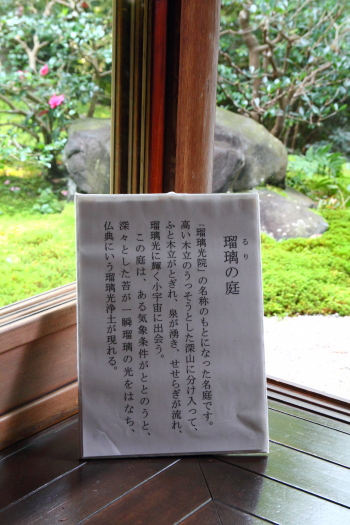 るり
瑠璃の庭
「瑠璃光院」の名称のもとになった名庭です。
高い木立のうっそうとした深山に分け入って、
ふと木立がとぎれ、泉が湧き、せせらぎが流れ、
瑠璃光に輝く小宇宙に出会う。
この庭は、ある気象条件がととのうと、
深々とした苔が一瞬瑠璃の光をはなち、
仏典にいう瑠璃光浄土が現れる。